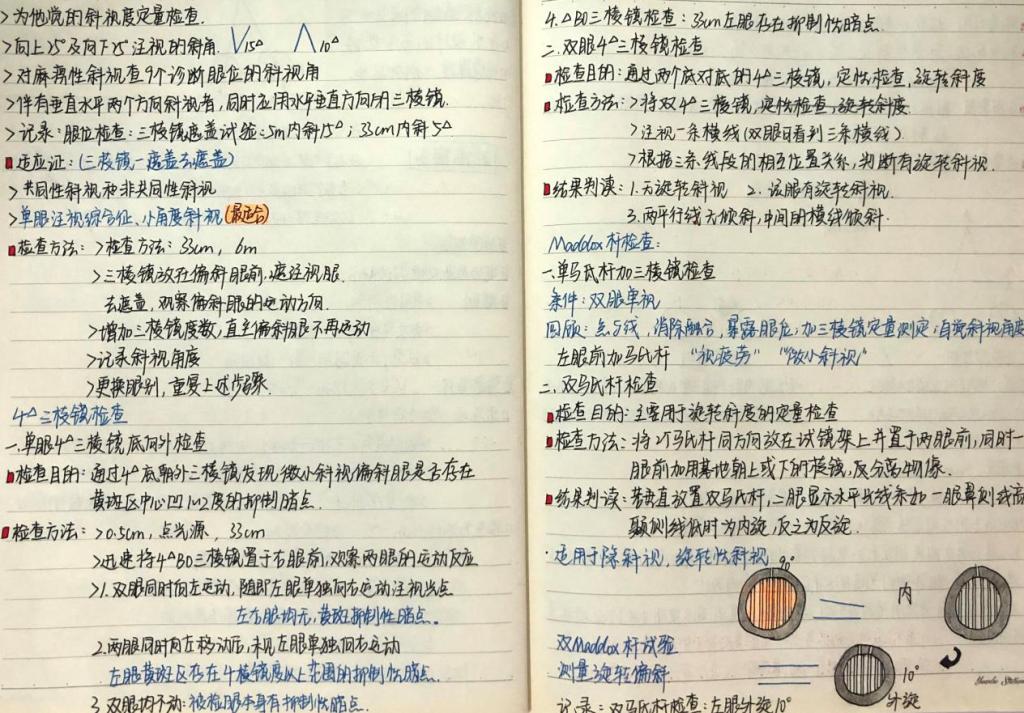 >为他觉的斜视度定量检查.
>向上25°及向下25°注视的斜角. V15△ Λ10△
>对麻痹性斜视查9个诊断眼位的斜视角
>伴有垂直水平两个方向斜视者,同时应用水平垂直方向的三棱镜.
>记录:眼位检查:三棱镜遮盖试验:5m内斜15△;33cm内斜5△
适应证:(三棱镜—遮盖去遮盖)
>共同性斜视和非共同性斜视
>单眼注视综合征、小角度斜视(最适合)
检查方法:>检查方法:33cm,6m
>三棱镜放在偏斜眼前,遮注视眼.
去遮盖,观察偏斜眼的运动方向.
>增加三棱镜度数,直至偏斜眼不再运动
>记录斜视角度
>更换眼别,重复上述步骤.
4△三棱镜检查
一.单眼4△三棱镜底向外检查
检查目的:通过4△底朝外三棱镜发现微小斜视偏斜眼是否存在
黄斑区中心凹1~2度的抑制暗点.
检查方法:>0.5cm,点光源,33cm
>迅速将4△BO三棱镜置于右眼前,观察两眼的运动反应
>1.双眼同时向左运动,随即左眼单独向右运动注视光点
左右眼均无,黄斑抑制性暗点。
2.两眼同时向左移动后,未见左眼单独向右运动
左眼黄斑区存在4棱镜度以上范围的抑制性暗点.
3.双眼均不动:被检眼本身有抑制性暗点.
4.△BO三棱镜检查:33cm左眼存在抑制性暗点.
二.双眼4△三棱镜检查
检查目的:通过两个底对底的4△三棱镜,定性检查,旋转斜度
检查方法:>将双4△三棱镜,定性检查,旋转斜度.
>注视一条横线(双眼可看到三条横线)
>根据三条线段的相互位置关系,判断有旋转斜视.
结果判读:1.无旋转斜视 2.该眼有旋转斜视.
3.两平行线无倾斜,中间的横线倾斜.
Maddox杆检查:
一.单马氏杆加三棱镜检查
条件:双眼单视
回顾:点与线,消除融合,暴露眼位;加三棱镜定量测定;自觉斜视角度
左眼前加马氏杆 “视疲劳” “微小斜视”
二.双马氏杆检查
检查目的:主要用于旋转斜度的定量检查
检查方法:将2个马氏杆同方向放在试镜架上并置于两眼前,同时一
眼前加用基地朝上或下的棱镜,以分离物像.
结果判读:若垂直放置双马氏杆,二眼显示水平光线条如一眼鼻侧或高
颞侧线低时为内旋,反之为反旋.
·适用于隐斜视,旋转性斜视
90°
内
双Maddox杆试验
测量旋转偏斜
10°
外旋
记录:双马氏杆检查:左眼外旋10°